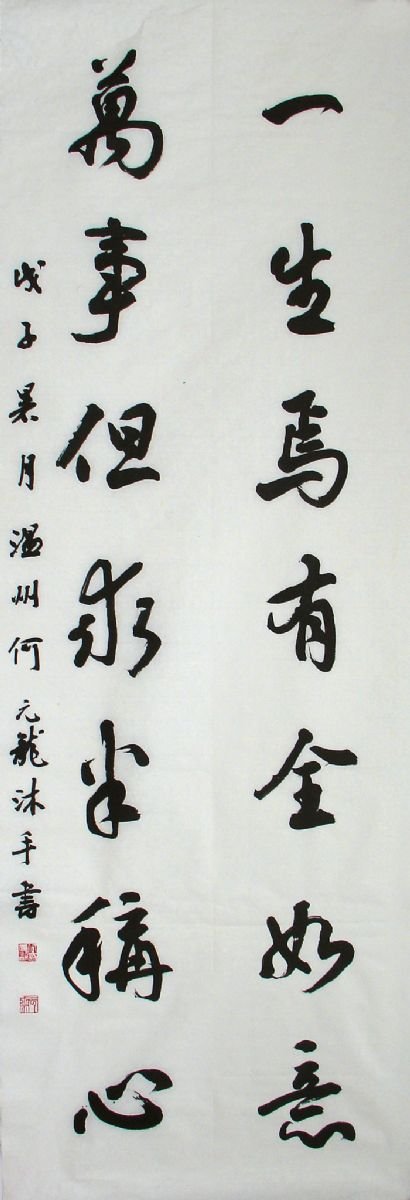 一生焉有全如意
萬事但求半稱心
戊子暑月溫州何元龍沐手書